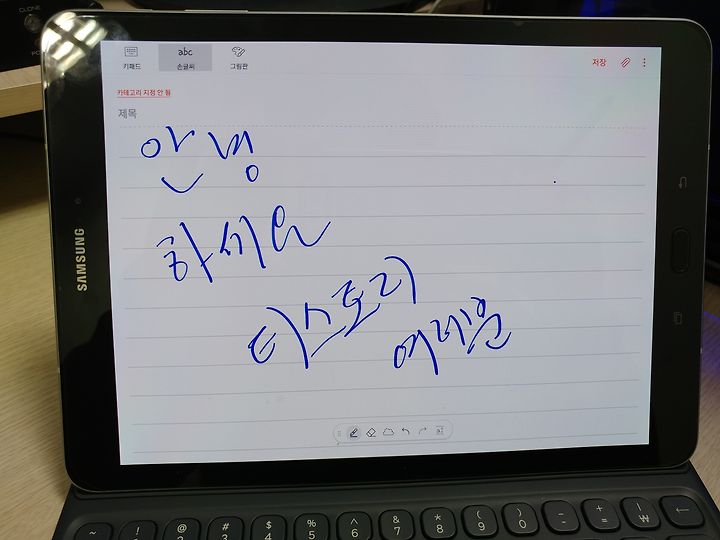 CLONE
PC
키패드 abc 손글씨 그림판 저장
카테고리 지정 안 됨
제목
안녕
하세요
티스토리
여러분
SAMSUNG
~ ! @ # $ % ^ & * ( ) _ + ₩ ←
1 2 3 4 5 6 7 8 9 0 - =